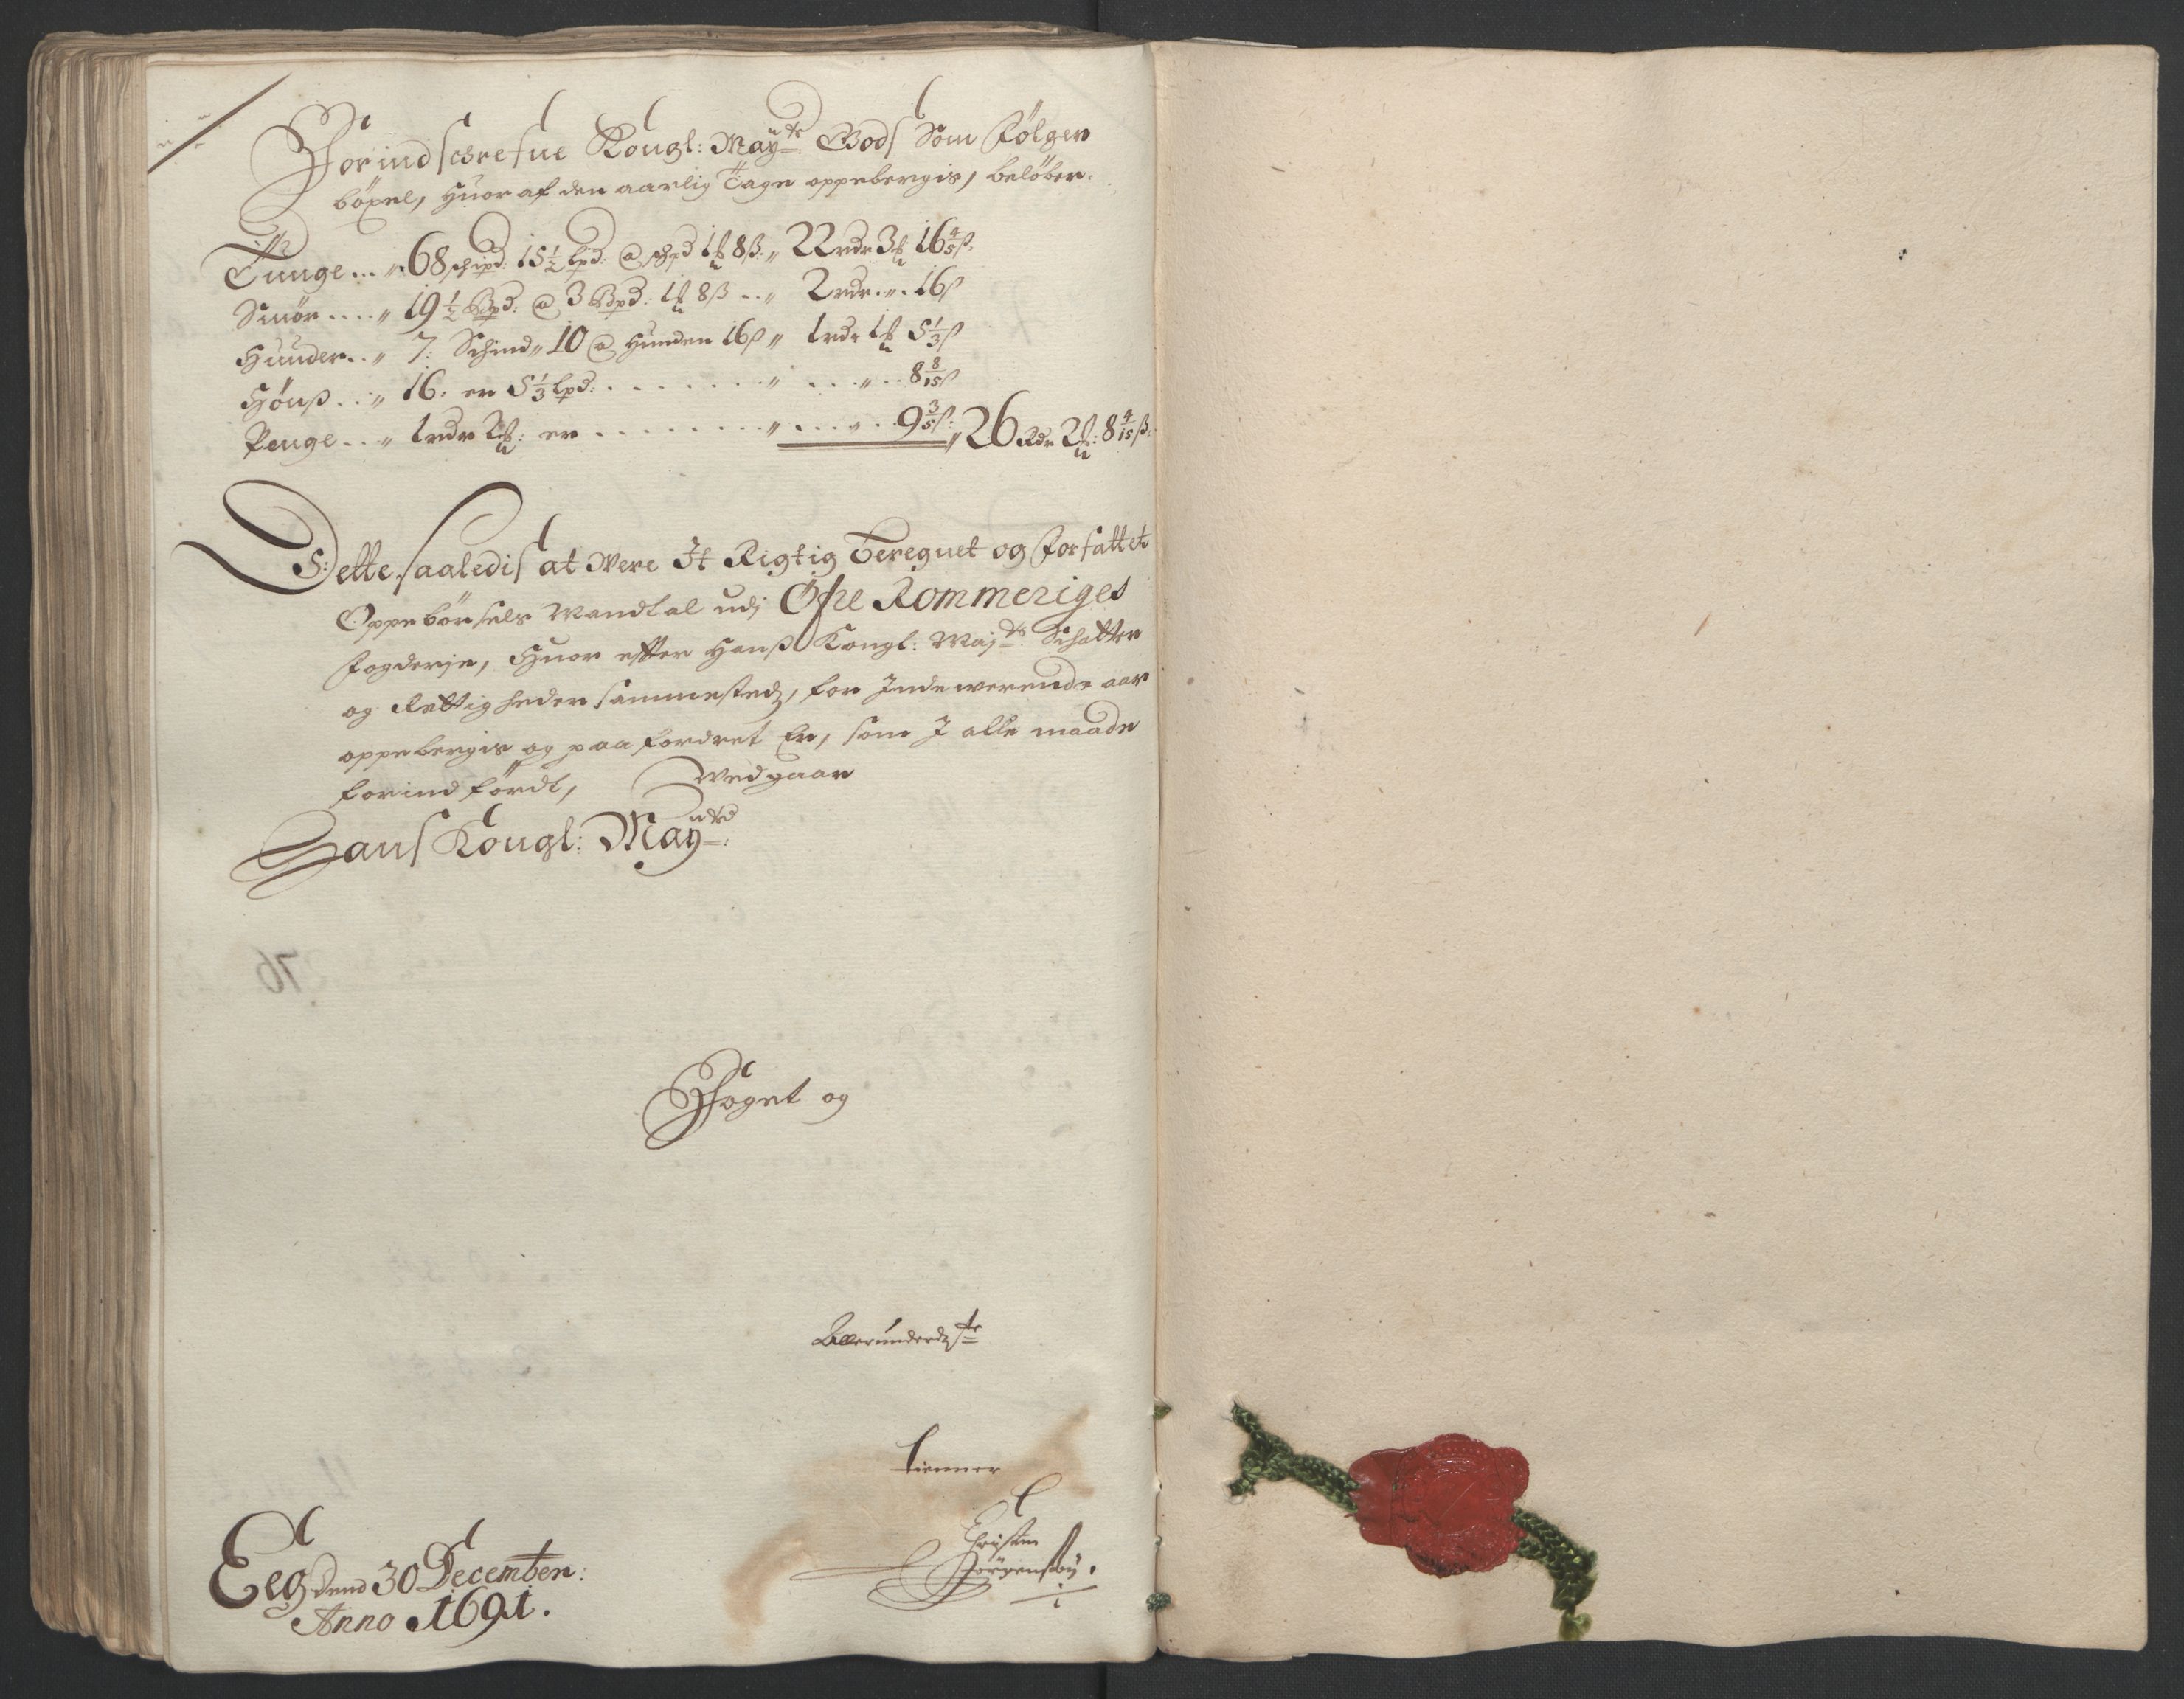 Forindschrefue Kongl: Maÿ:ts Gods Som Følger
böxel, Huor af den aarlig Tage oppebergis, beløber.
Tunge ... „ 68 schipd: 15½ lpd: @ schpd 1 ℔ 8ß. „ 22 rdr 3 ℔ 16⅘ß.
Smör .... „ 19½ Bpd: @ 3 Bpd: 1 ℔ 8ß .. „ 2 rdr . „ . 16ß
Huuder .. „ 7: Schind „ 10 @ Huuden 16ß „ 1 rdr 1 ℔ 5⅓ß
Hönß .. „ 16: er 5⅓ lpd: . . . . . . . „ . . . „ . . 8 8/15ß
Penge .. „ 1 rdr 2 ℔: er . . . . . . . „ . . . „ . . 9⅗ß: „ 26 Rdr 2 ℔: 8 4/15 ß:
Dette saaledis at Were It Rigtig beregnet og forfattet
Oppebörsels Mandtal udj Öfre Rommeriges
fogderje, Huor efter Hanß Kongl: Maj:ts Schatter
og Rettigheder sammesteds, for Indewerende aar
oppebergis og paafordret Er, som J alle maade
forindfördt, Wedgaar
Hans Kongl: Maÿ:ts
76
Foget og
Allerunderd:ste
tienner
Christen
Jörgensöy.
Eeg dend 30 December:
Anno 1691.